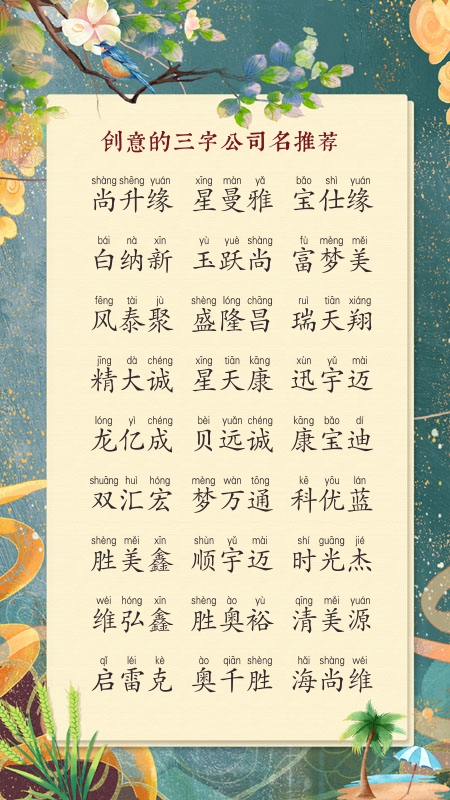 创意的三字公司名推荐
shàng shēng yuán xīng màn yǎ bǎo shì yuán
尚升缘 星曼雅 宝仕缘
bái nà xīn yù yuè shàng fù mèng měi
白纳新 玉跃尚 富梦美
fēng tài jù shèng lóng chāng ruì tiān xiáng
风泰聚 盛隆昌 瑞天翔
jīng dà chéng xīng tiān kāng xùn yǔ mài
精大诚 星天康 迅宇迈
lóng yì chéng bèi yuǎn chéng kāng bǎo dí
龙亿成 贝远诚 康宝迪
shuāng huì hóng mèng wàn tōng kē yōu lán
双汇宏 梦万通 科优蓝
shèng měi xīn shùn yǔ mài shí guāng jié
胜美鑫 顺宇迈 时光杰
wéi hóng xīn shèng ào yù qīng měi yuán
维弘鑫 胜奥裕 清美源
qǐ léi kè ào qiān shèng hǎi shàng wéi
启雷克 奥千胜 海尚维